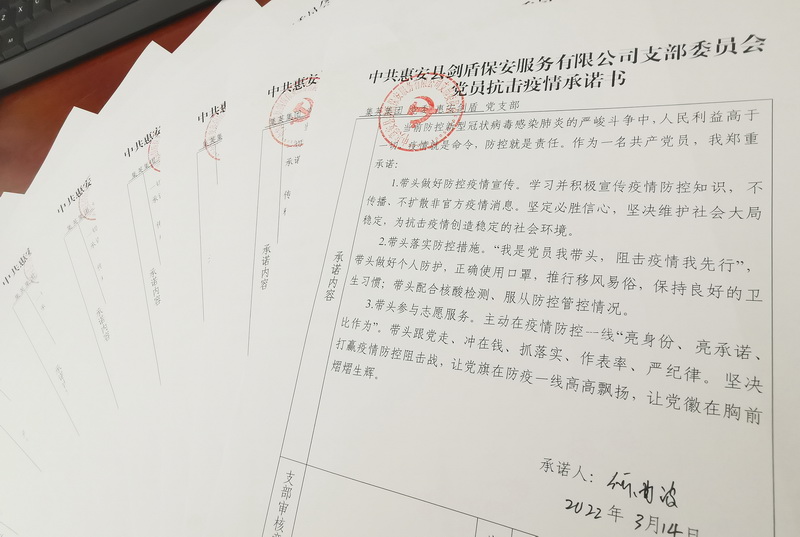 中共惠安县剑盾保安服务有限公司支部委员会
党员抗击疫情承诺书
惠安剑盾 党支部
当前防控新型冠状病毒感染肺炎的严峻斗争中，人民利益高于
一切，疫情就是命令，防控就是责任。作为一名共产党员，我郑重
承诺：
1.带头做好防控疫情宣传。学习并积极宣传疫情防控知识，不
传播、不扩散非官方疫情消息。坚定必胜信心，坚决维护社会大局
稳定，为抗击疫情创造稳定的社会环境。
2.带头落实防控措施。“我是党员我带头，阻击疫情我先行”，
带头做好个人防护，正确使用口罩，推行移风易俗，保持良好的卫
生习惯；带头配合核酸检测、服从防控管控情况。
3.带头参与志愿服务。主动在疫情防控一线“亮身份、亮承诺、
比作为”。带头跟党走、冲在钱、抓落实、作表率、严纪律。坚决
打赢疫情防控阻击战，让党旗在防疫一线高高飘扬，让党徽在胸前
熠熠生辉。
承诺内容
承诺人：
2022年3月14日
支部审核
中共惠安
承诺内容
中共惠
承诺内容
中共惠安
承诺内容
中共惠安
承诺内容
中共惠